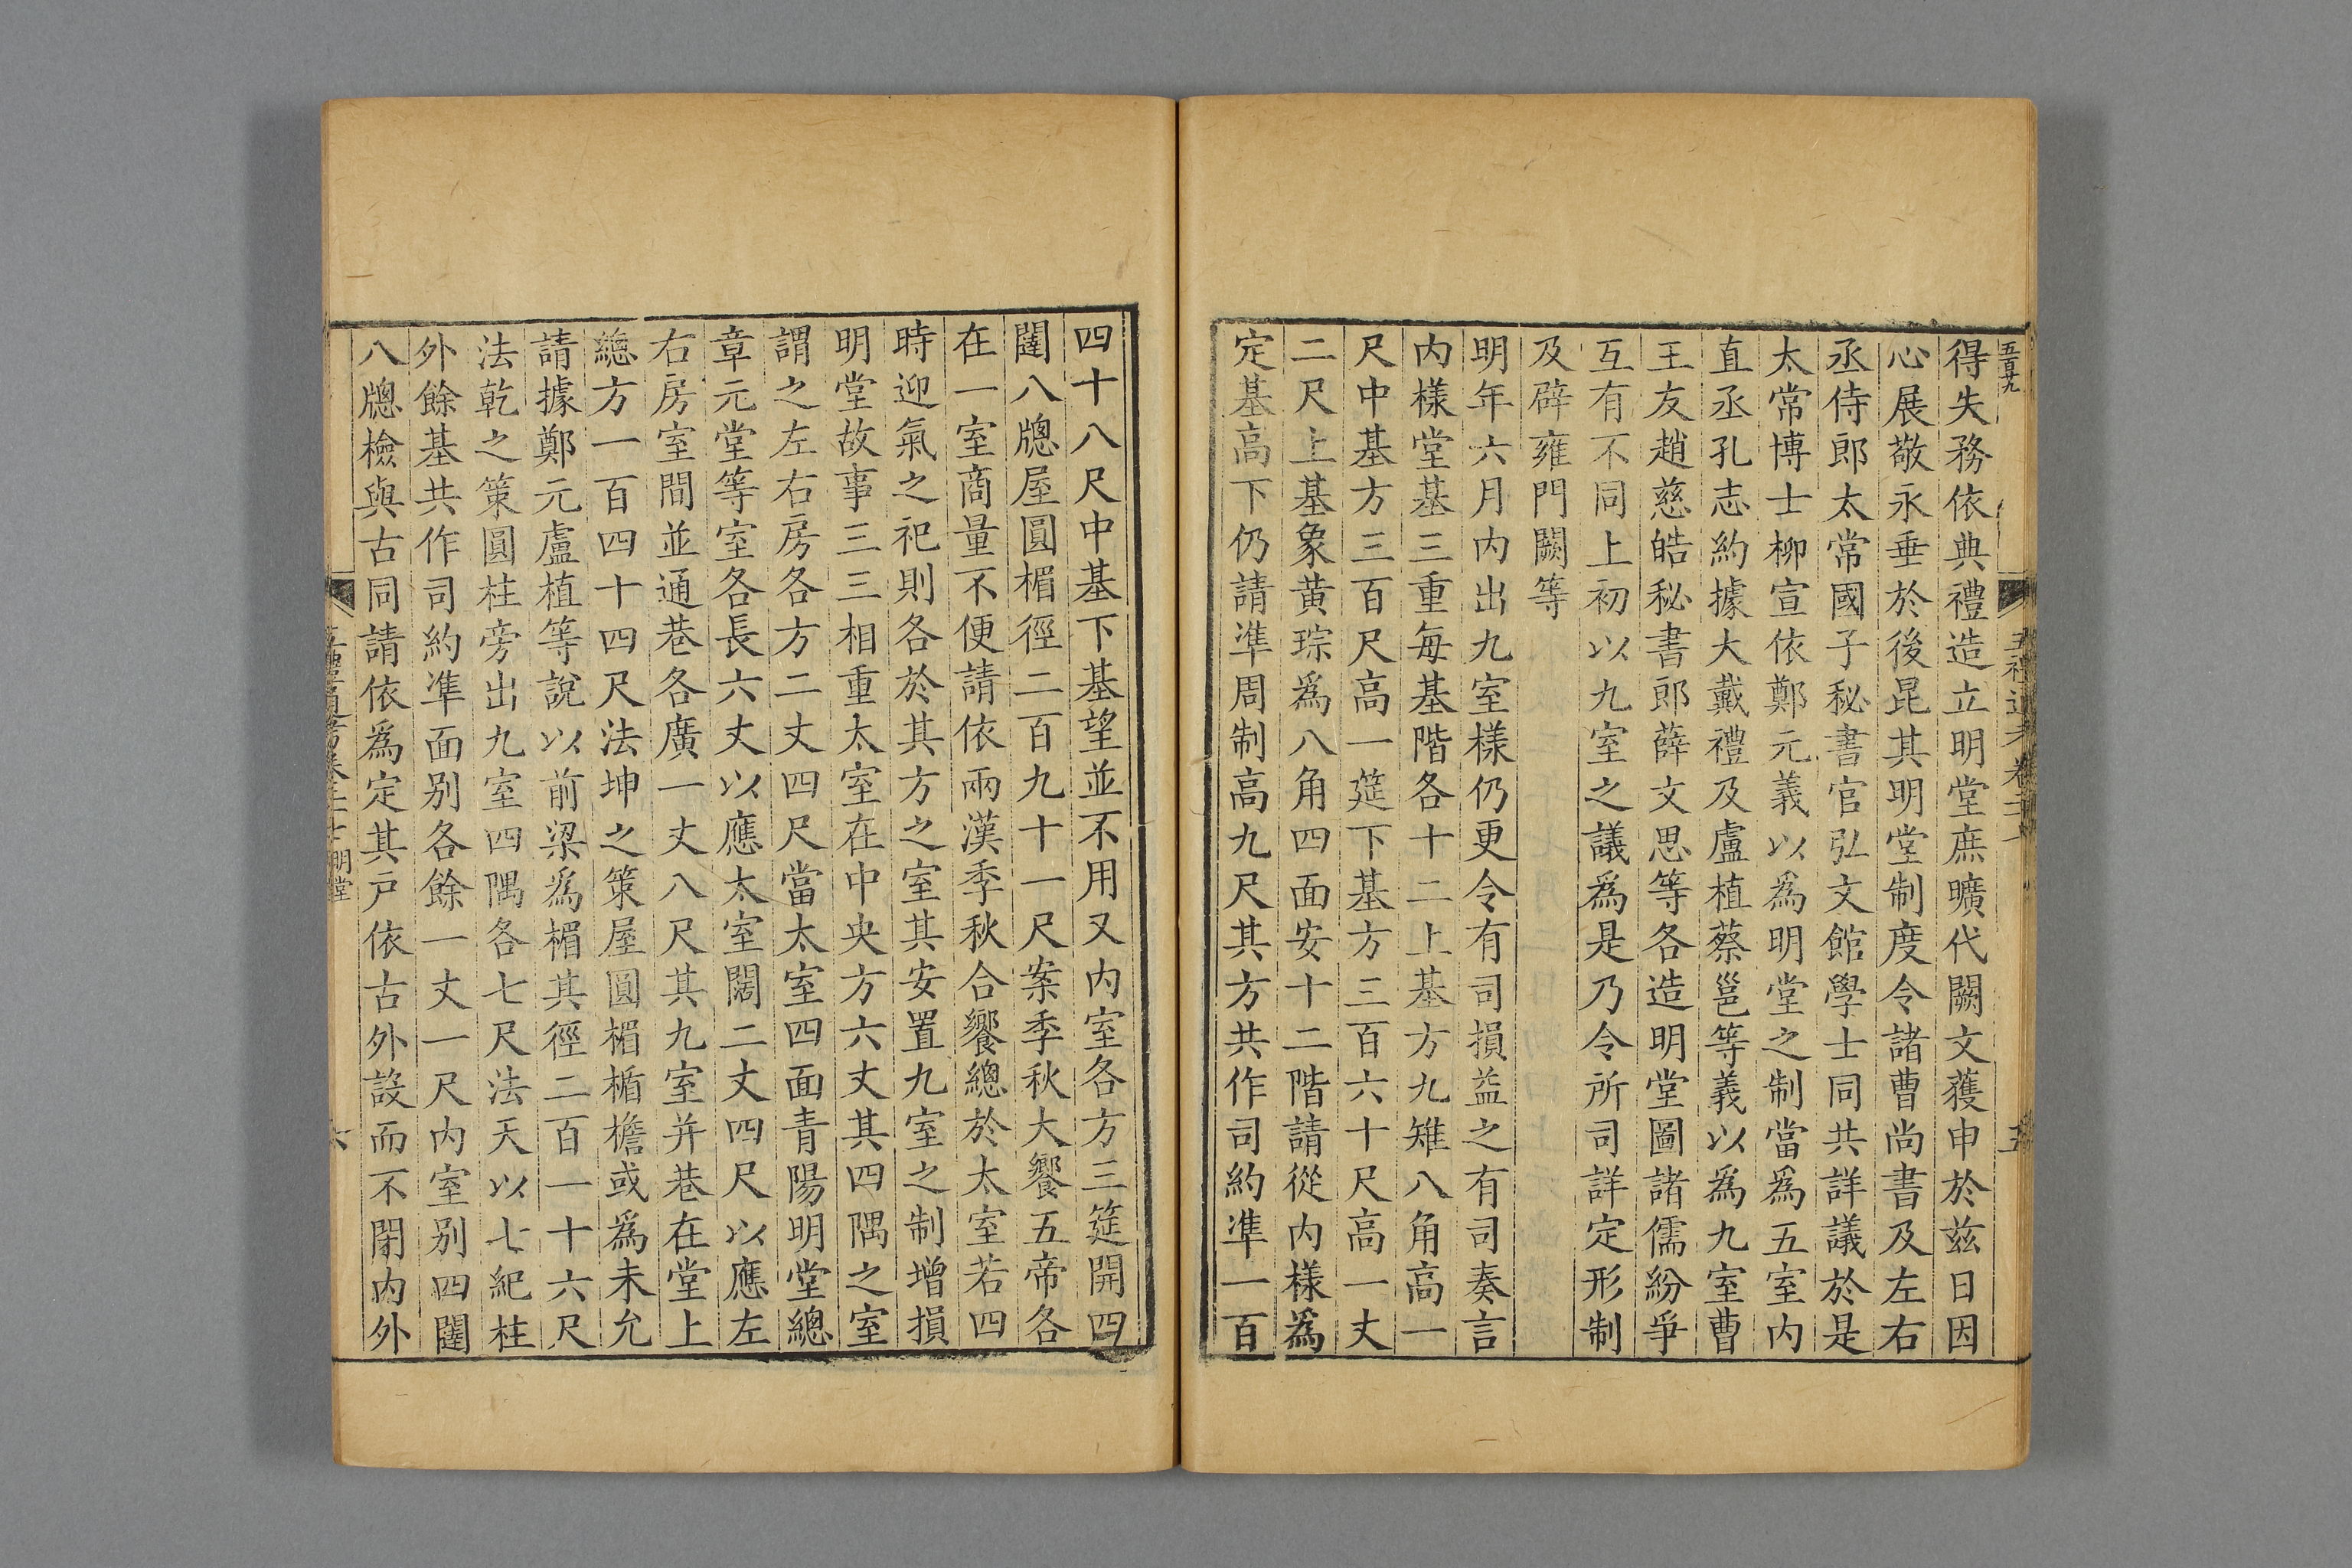 五百九
得失務依典禮造立明堂庶曠代闕文獲申於兹日因
心展敬永垂於後昆其明堂制度令諸曹尚書及左右
丞侍郎太常國子秘書官弘文館學士同共詳議於是
太常博士柳宣依鄭元義以為明堂之制當為五室内
直丞孔志約據大戴禮及盧植蔡邕等義以為九室曹
王友趙慈皓秘書郎薛文思等各造明堂圖諸儒紛爭
互有不同上初以九室之議為是乃令所司詳定形制
及辟雍門闕等
明年六月内出九室様仍更令有司損益之有司奏言
内様堂基三重每基階各十二上基方九雉八角高一
尺中基方三百尺高一筵下基方三百六十尺高一丈
二尺上基象黄琮為八角四面安十二階請從内様為
定基高下仍請準周制高九尺其方共作司約準一百
四十八尺中基下基望並不用又内室各方三筵開四
闥八牕屋圓楣徑二百九十一尺案季秋大饗五帝各
在一室商量不便請依兩漢季秋合饗總於太室若四
時迎氣之祀則各於其方之室其安置九室之制增損
明堂故事三三相重太室在中央方六丈其四隅之室
謂之左右房各方二丈四尺當太室四面青陽明堂總
章元堂等室各長六丈以應太室闊二丈四尺以應左
右房室間並通巷各廣一丈八尺其九室并巷在堂上
總方一百四十四尺法坤之策屋圓楣楯檐或為未允
請據鄭元盧植等說以前梁為楣其徑二百一十六尺
法乾之策圓柱旁出九室四隅各七尺法天以七紀柱
外餘基共作司約準面别各餘一丈一尺内室别四闥
八牕檢與古同請依為定其户依古外設而不閉内外
明堂
六